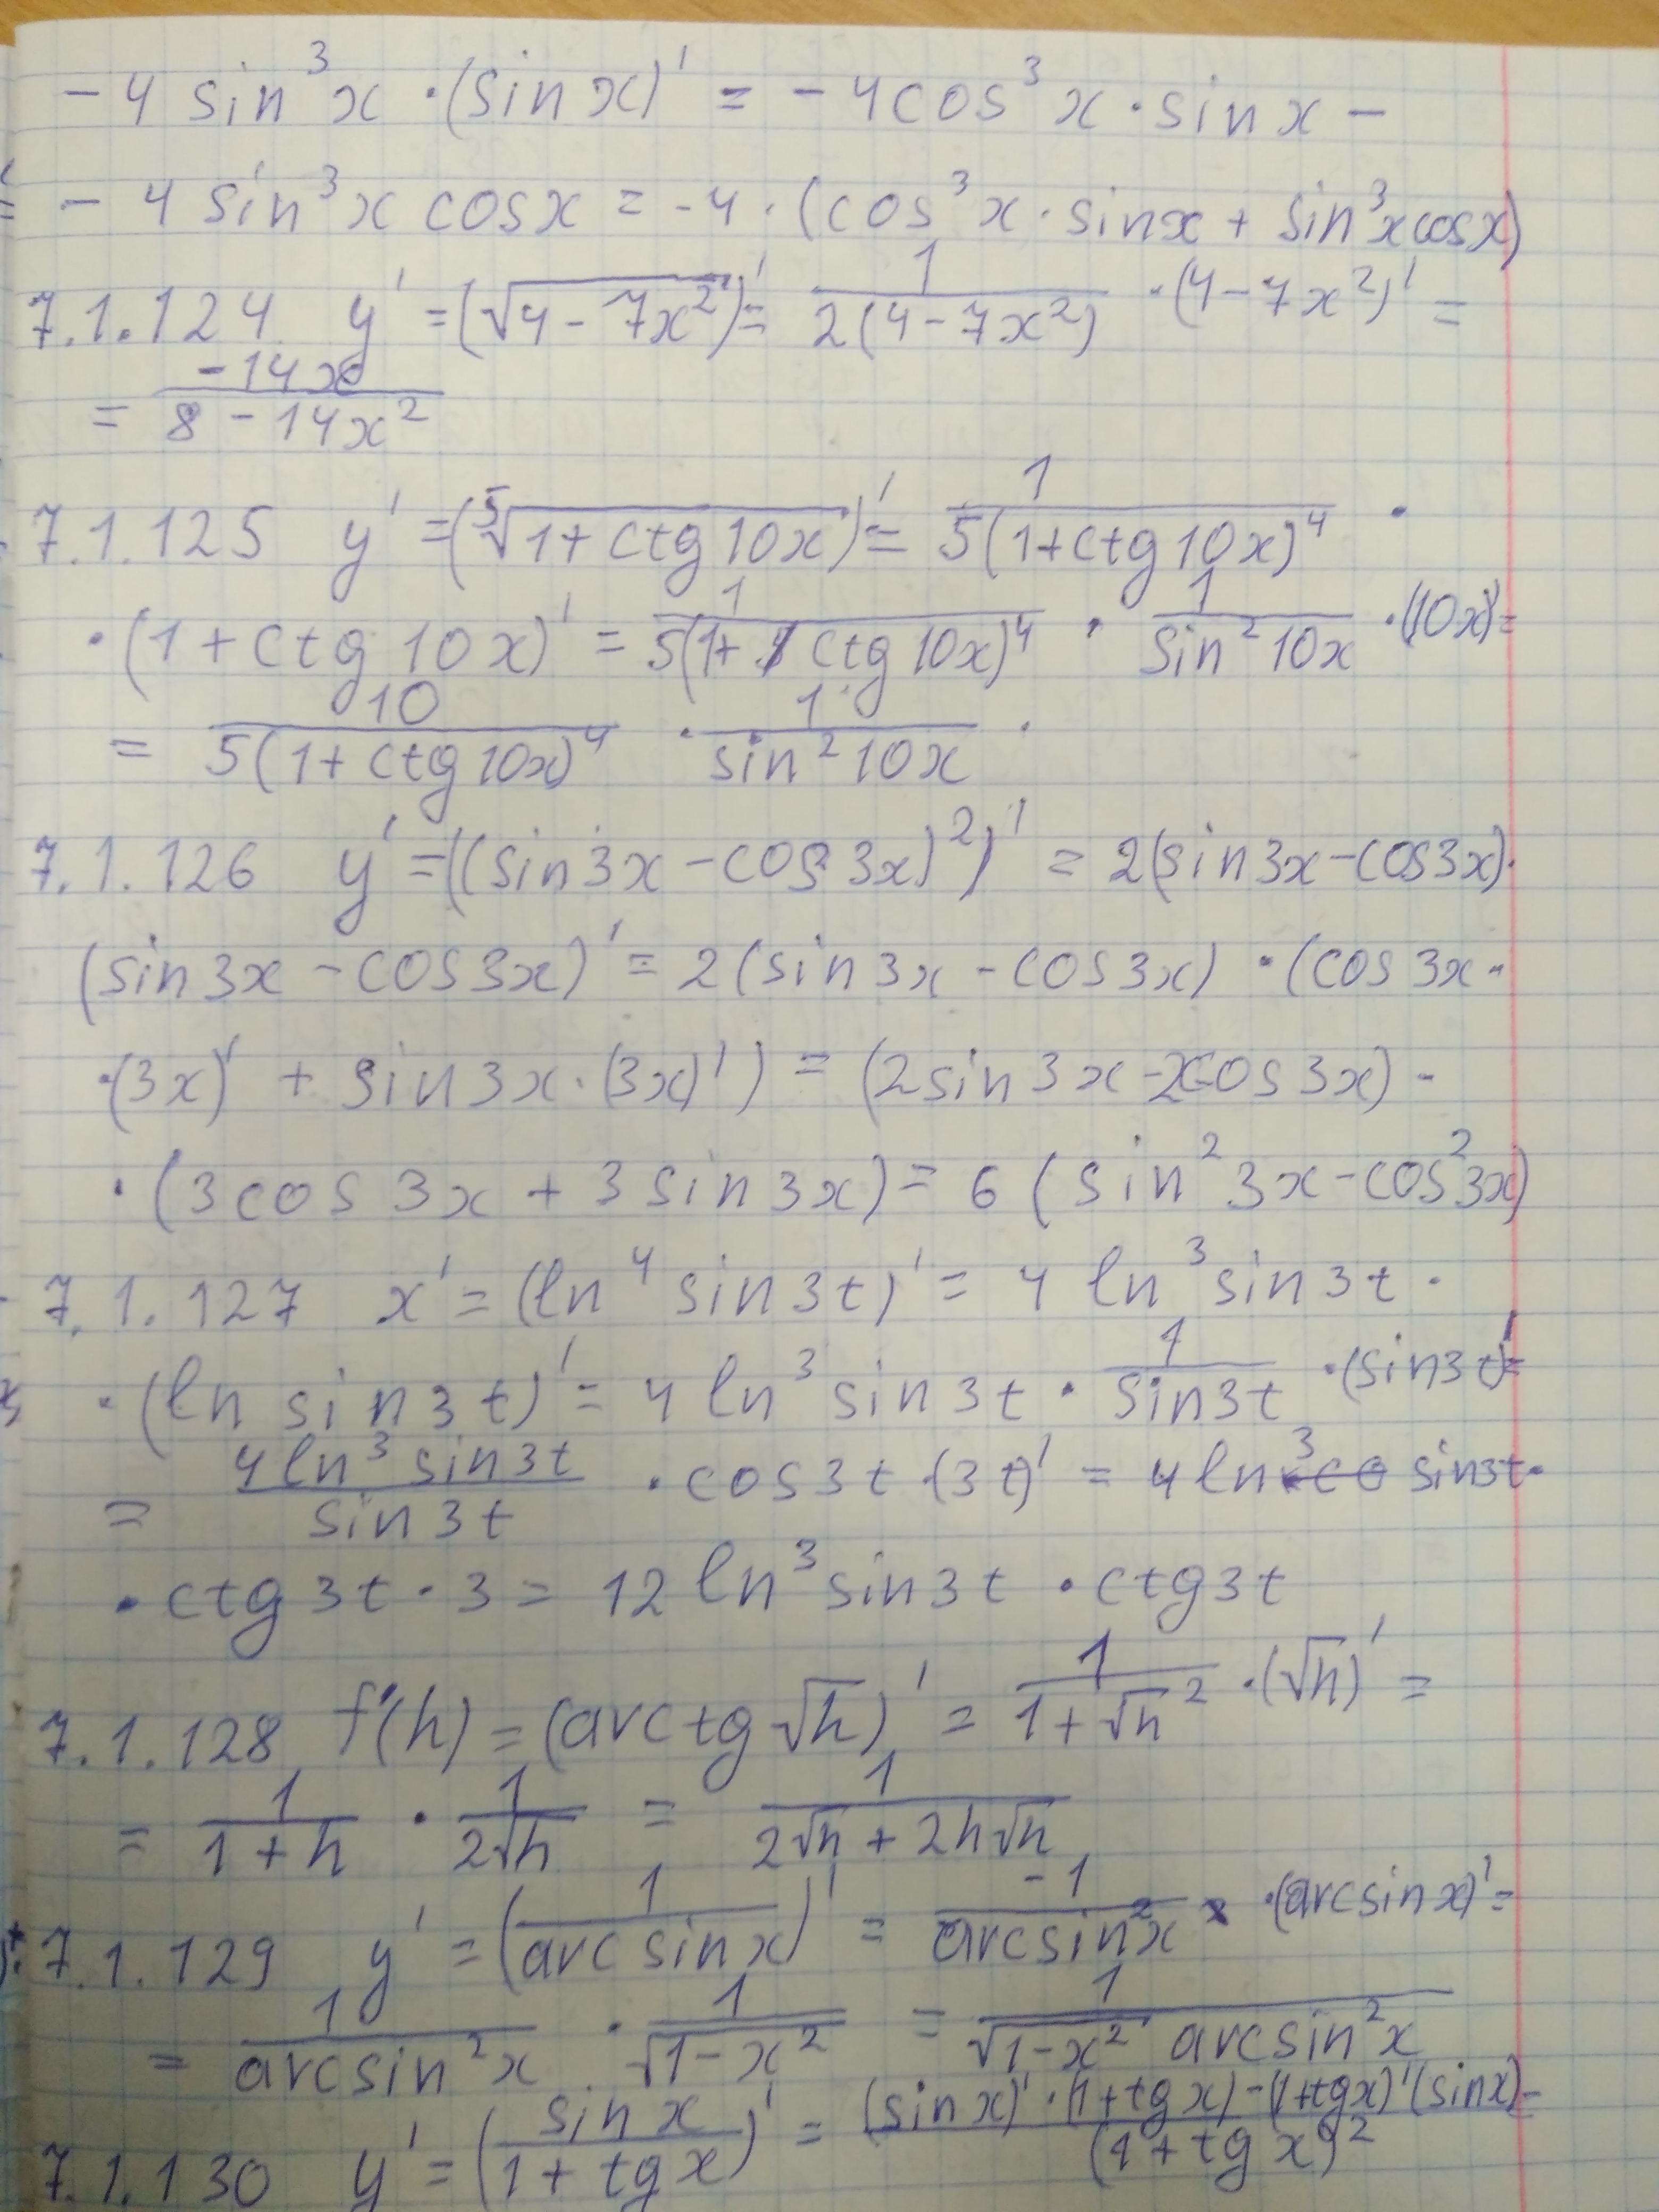 - 4 sin³x · (sin x)' = - 4cos³x · sin x -
- 4 sin³x cosx = -4 · (cos³x · sinx + sin³x cosx)
7.1.124 y' = (√4 - 7x²)' = 1/2(4 - 7x²) · (4 - 7x²)' =
= -14x/8 - 14x²
7.1.125 y' = (⁵√1 + ctg 10x)' = 1/5(1+ctg 10x)⁴ ·
· (1 + ctg 10x)' = 1/5(1+ ctg 10x)⁴ · 1/sin² 10x · (10x)' =
= 10/5(1 + ctg 10x)⁴ · 1/sin² 10x .
7.1.126 y' = ((sin 3x - cos 3x)²)' = 2(sin 3x - cos 3x) ·
(sin 3x - cos 3x)' = 2 (sin 3x - cos 3x) · (cos 3x ·
· (3x)' + sin 3x · (3x)') = (2 sin 3x - 2cos 3x) ·
· (3 cos 3x + 3 sin 3x) = 6 (sin² 3x - cos² 3x)
7.1.127 x' = (ln⁴ sin 3t)' = 4 ln³ sin 3t ·
· (ln sin 3t)' = 4 ln³ sin 3t · 1/sin 3t · (sin 3t)' =
= 4 ln³ sin 3t/sin 3t · cos 3t · (3t)' = 4 ln³ sin 3t ·
· ctg 3t · 3 = 12 ln³ sin 3t · ctg 3t
7.1.128 f'(h) = (arctg √h)' = 1/1 + √h² · (√h)' =
= 1/1 + h · 1/2√h = 1/2√h + 2h√h
7.1.129 y' = (1/arcsin x)' = -1/arcsin²x · (arcsin x)' =
= 1/arcsin²x · 1/√1 - x² = 1/√1 - x² arcsin²x
7.1.130 y' = (sin x/1 + tg x)' = (sin x)' · (1 + tg x) - (1 + tg x)' (sin x)/(1 + tg x)² =